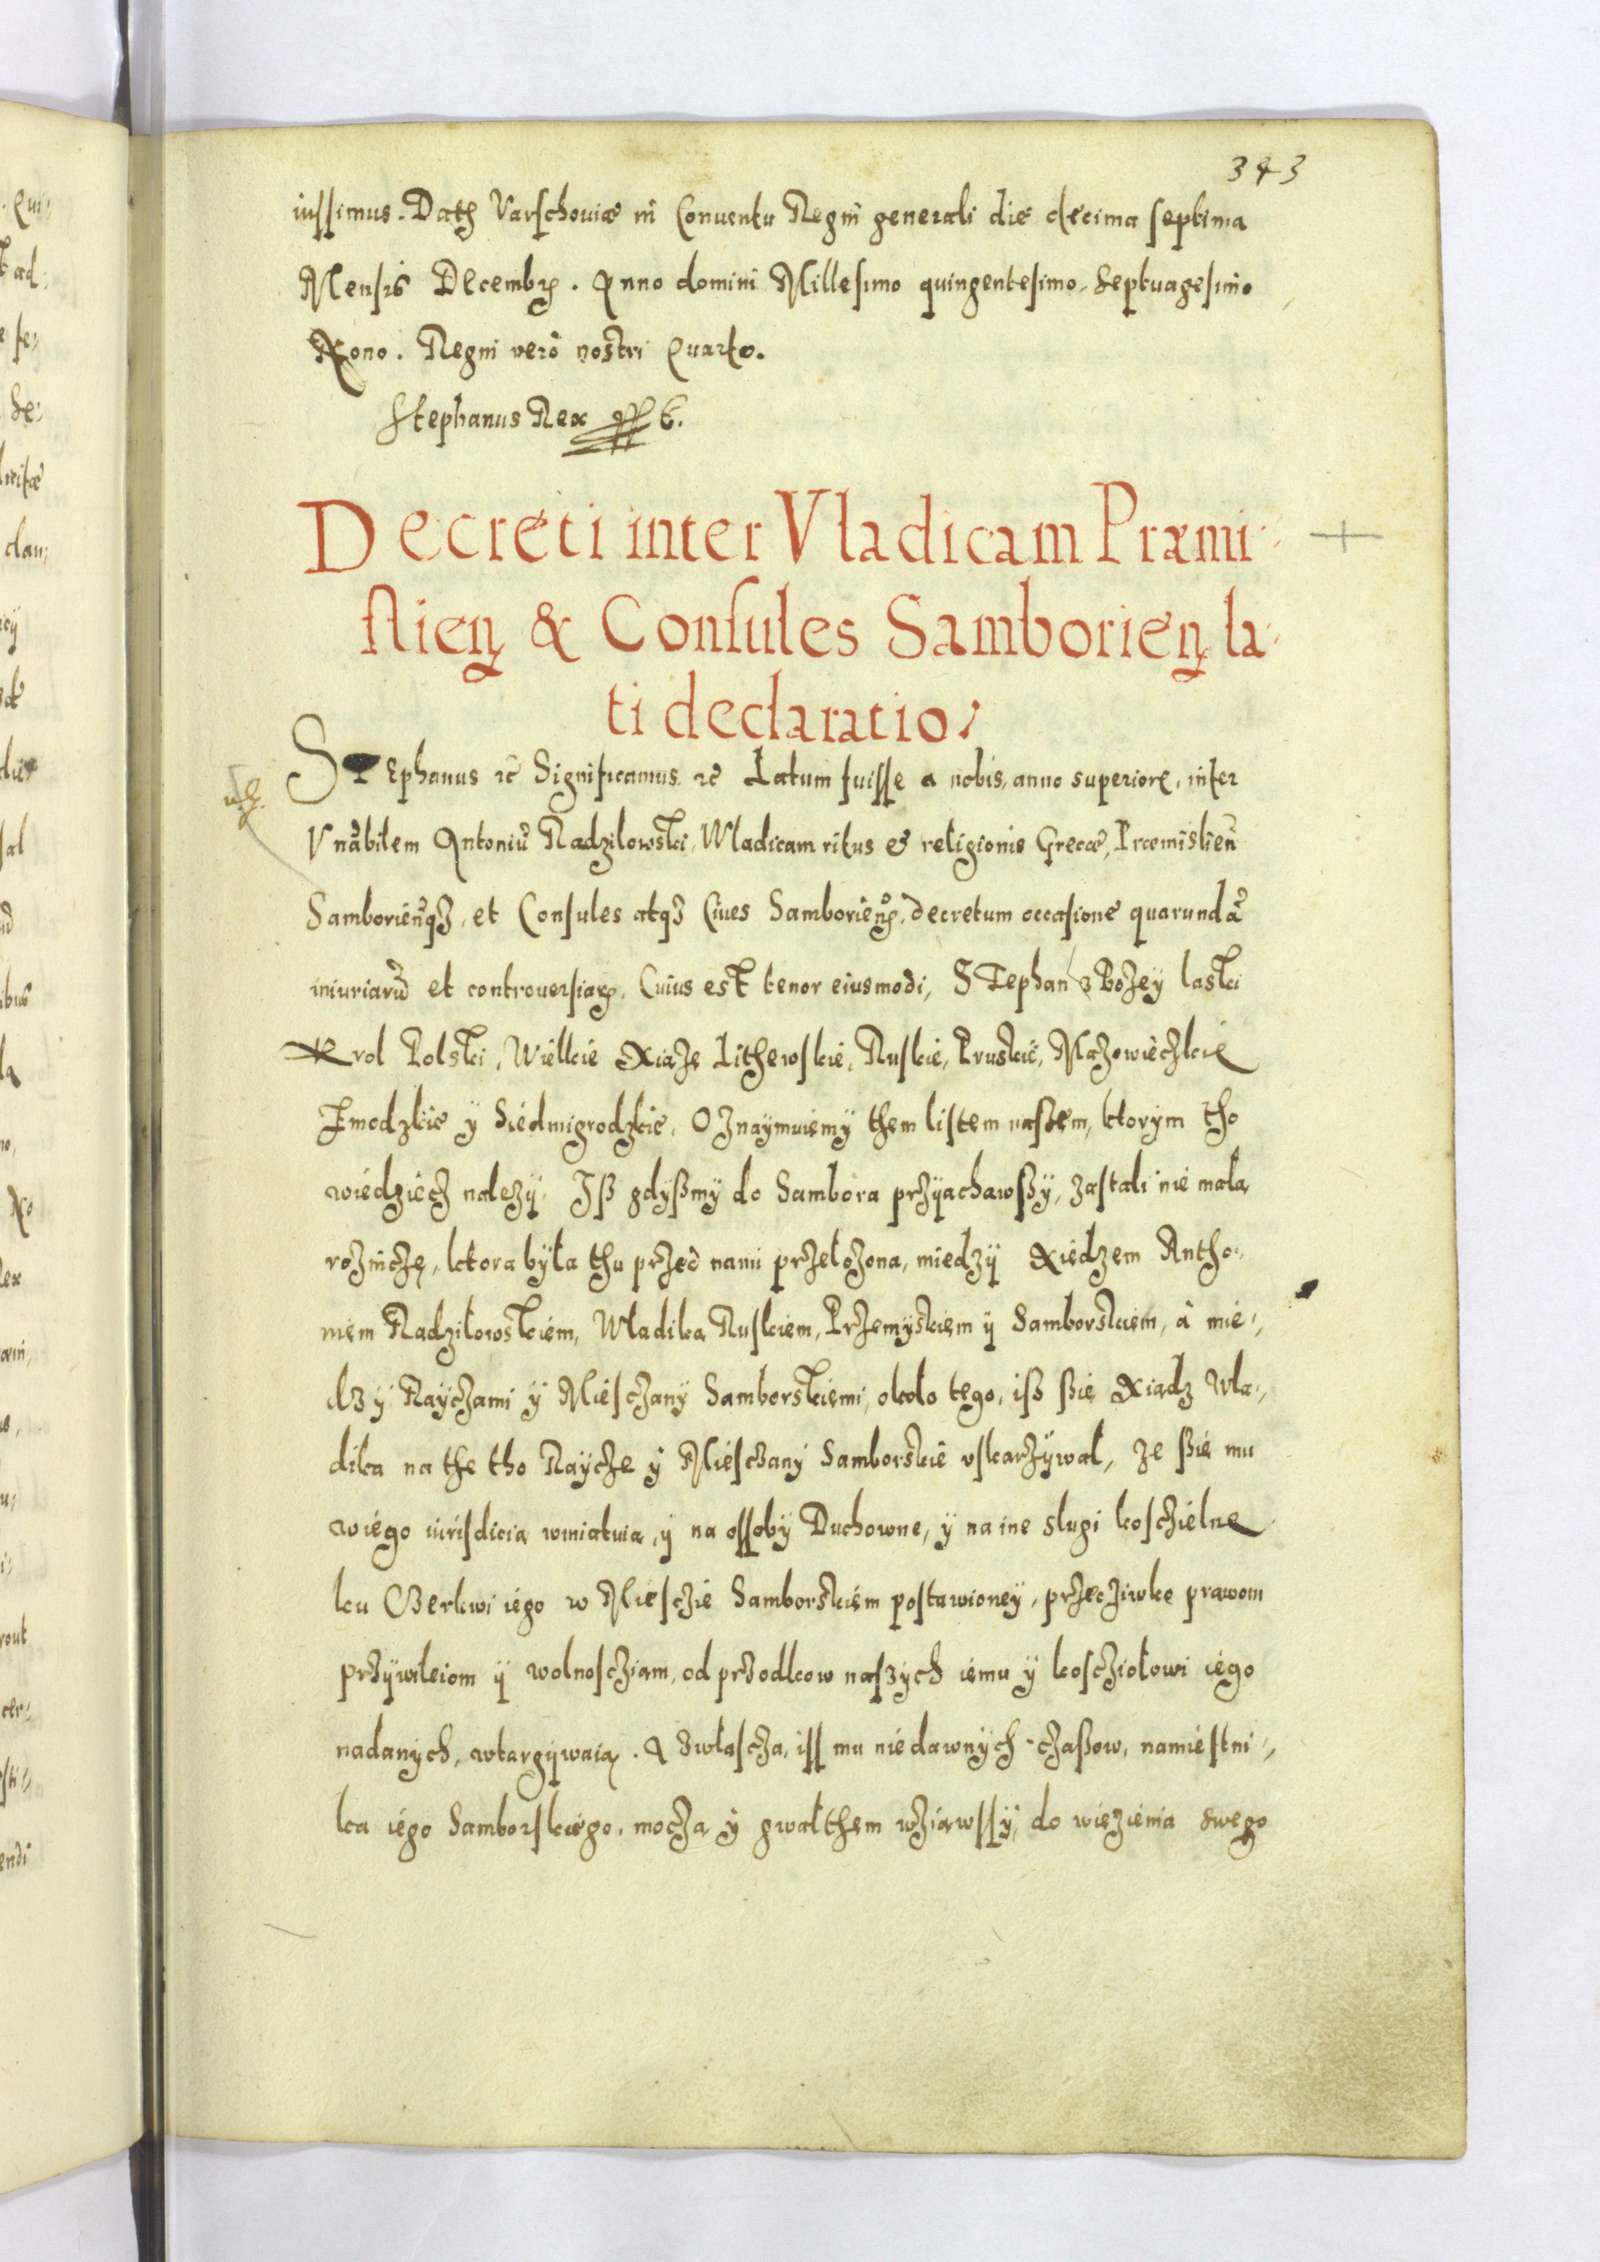 343
iussimus. Datꝫ Varschouiæ in Conuentu Regni generali die decima septima
Mensis Decembrꝭ. Anno domini Millesimo quingentesimo. Septuagesimo
Nono. Regni verò nostri Quarto.
Stephanus Rex
Decreti inter Vladicam Præmi-
slieñ & Consules Samborieñ la-
ti declaratio.
STephanus ꝛc̃ Significamus ꝛc̃ Latum fuisse a nobis, anno superiore, inter
Vnãbilem Antoniũ Radzilowski, Wladicam ritus & religionis Grecæ, Præmislieñ
Samborieñqꝫ, et Consules atqꝫ Ciues Samborieñ, decretum occasione quarundã
iniuriarũ et controuersiarꝝ, Cuius est tenor eiusmodi, STephan z Bozey laski
Krol Polski, Wielkie Xiaze Lithewskie, Ruskie, Pruskie, Mazowieczkie
Zmodzkie ÿ Siedmigrodzkie, Oznaymuiemÿ them listem naszem, ktorÿm tho
wiedziecz nalezÿ. Iß gdyßmÿ do Sambora przÿachawßÿ, zastali nie mała
rozniczę, ktora bÿła thu przed nami przełozona, miedzÿ Xiedzem Antho-
niem Radziłowskiem, Władika Ruskiem, Przemÿskiem ÿ Samborskiem, à mie-
dzÿ Raÿczami ÿ Miesczanÿ Samborskiemi, około tego, iß ßie Xiadz Wla-
dika na the tho Raÿcze ÿ Miesczanÿ Samborskie vskarzÿwał, ze ßie mu
w iego iurisdicia wmiatuia, ÿ na ossobÿ Duchowne, ÿ na ine slugi kosczielne
ku Czerkwi iego w Miesczie Samborskiem postawioneÿ, przecziwko prawom
przÿwileiom ÿ wolnoscziam, od przodkow naszÿch iemu ÿ kosczìołowi iego
nadanÿch, wtargÿwaią. A zwłascza, iss mu niedawnÿch czaßow, namiestni-
ka iego Samborskiego, mocza ÿ gwałthem wziąwssÿ, do wiezienia swego